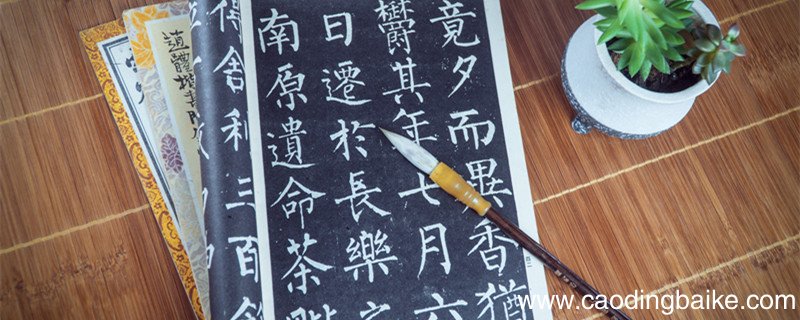 竟夕而異香猶
鬱其年七月六
日遷於長樂之
南原遺命茶毗
得舍利三百餘
www.caodingbaike.com